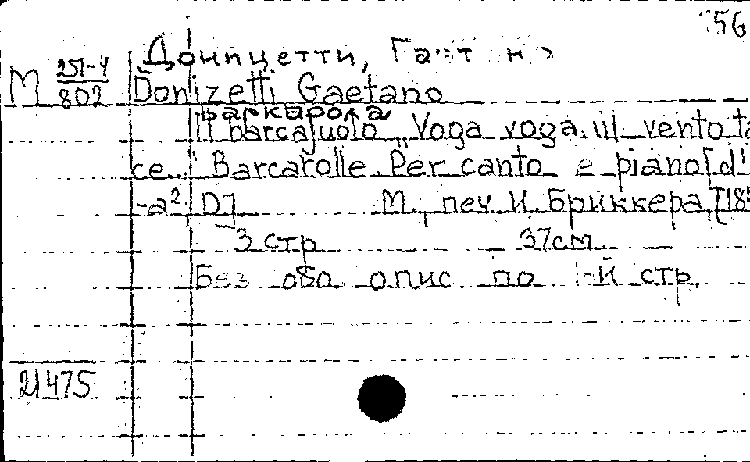 56
Доницетти, Гаэтано
М 251-4/802 Donizetti Gaetano
баркарола
Il barcajuolo „Voga voga il vento ta
ce Barcarolle Per canto e piano [d'
-a² D] М., печ И. Бриккера, [18
3 стр 37см
Без обл опис по 1-й стр
21475